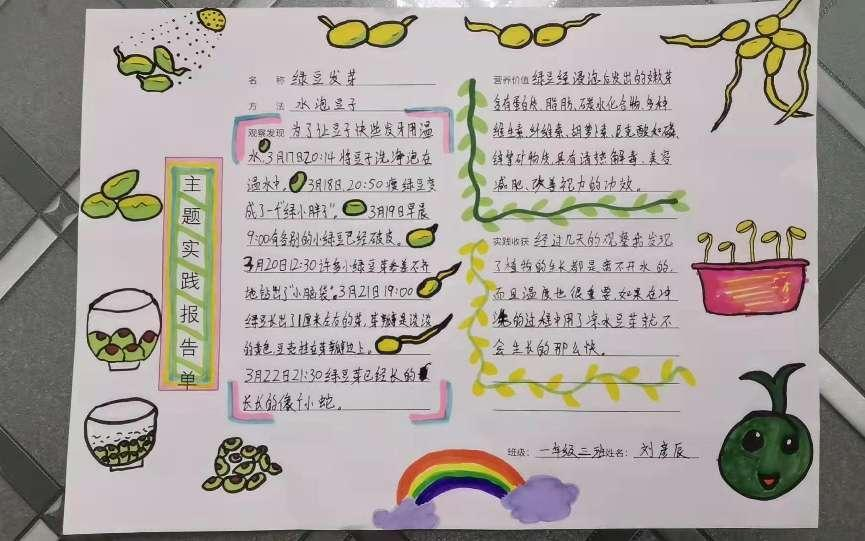 主题实践报告单
名 称 绿豆发芽
方 法 水泡豆子
观察发现 为了让豆子快些发牙用温
水。3月17日20:14将豆子洗净泡在
温水中。3月18日,20:50瘦绿豆变
成了一个"绿小胖子"。3月19日早晨
9:00有各别的小绿豆已经破皮。
3月20日12:30许多小绿豆芽羞羞不开
地钻出了"小脑袋"。3月21日19:00
绿豆长出了1厘米左右的芽,芽瓣是淡淡
的黄色,豆壳挂在芽瓣边上。
3月22日21:30绿豆芽已经长的
长长的像个小蛇。
营养价值 绿豆经浸泡后发出的嫩芽
含有蛋白质、脂肪、碳水化合物、多种
维生素、纤维素、胡萝卜素、尼克酸和磷、
锌等矿物质。具有清热解毒、美容
减肥、改善视力的功效。
实践收获 经过几天的观察我发现
了植物的生长都是离不开水的,
而且温度也很重要,如果在冲
洗的过程中用了凉水豆芽就不
会生长的那么快。
班级:一年级三班姓名:刘彦辰